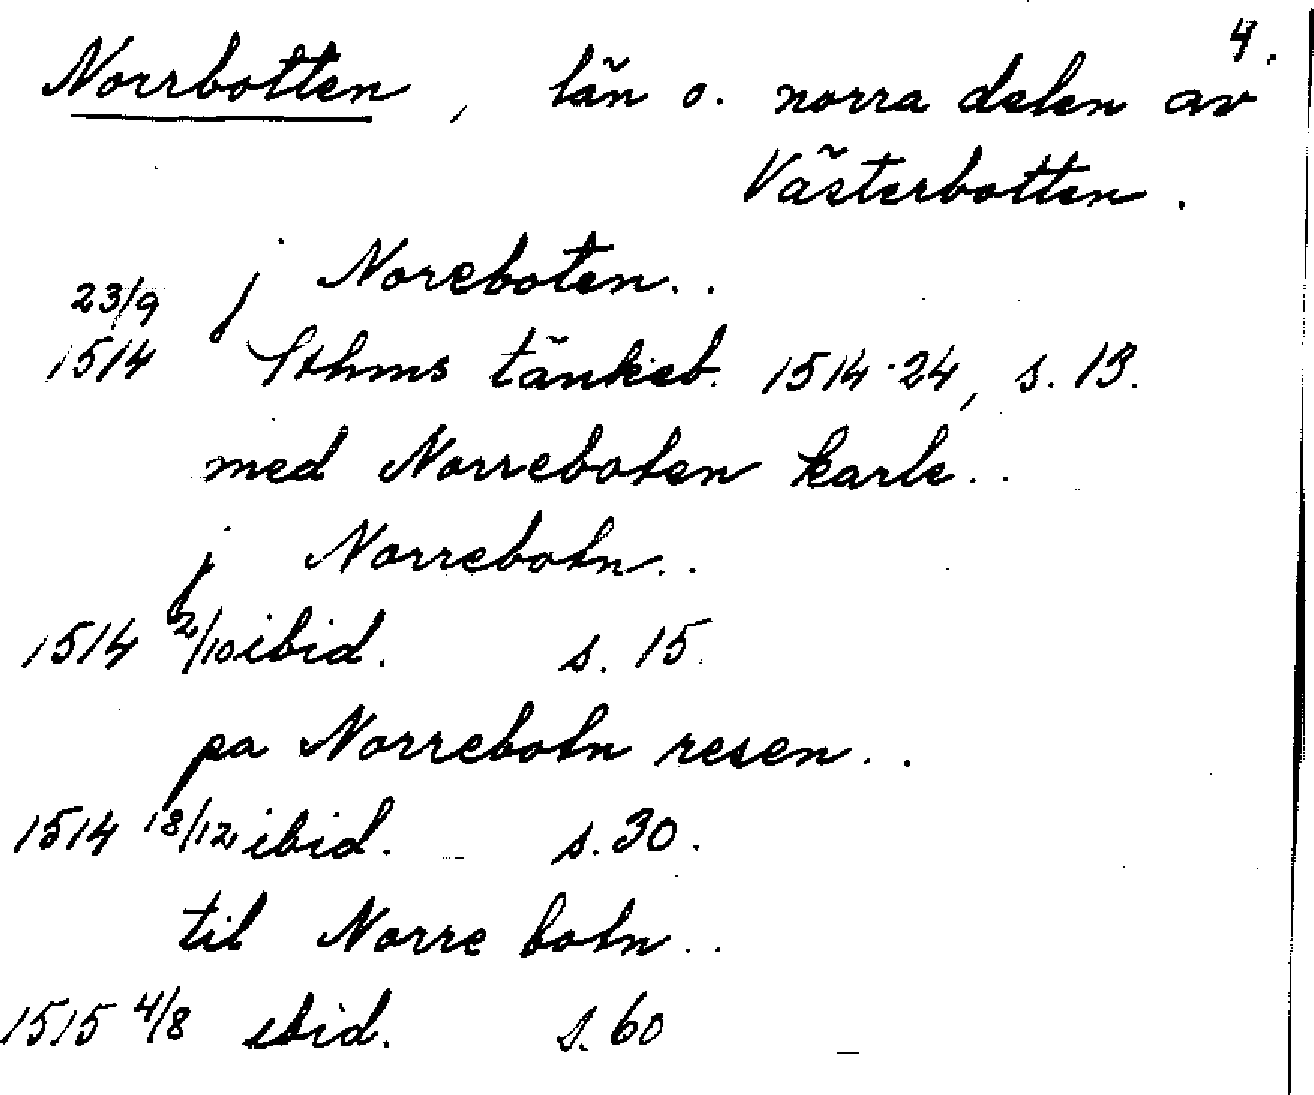 4.
Norrbotten, län o. norra delen av
Västerbotten.
j Noreboten..
23/9
1514 Sthms tänkeb. 1514-24, s. 13.
med Norreboten karle..
j Norrebotn..
1514 2/10 ibid. s. 15.
pa Norrebotn resen..
1514 18/12 ibid. s. 30.
til Norre botn..
1515 4/8 ibid. s. 60